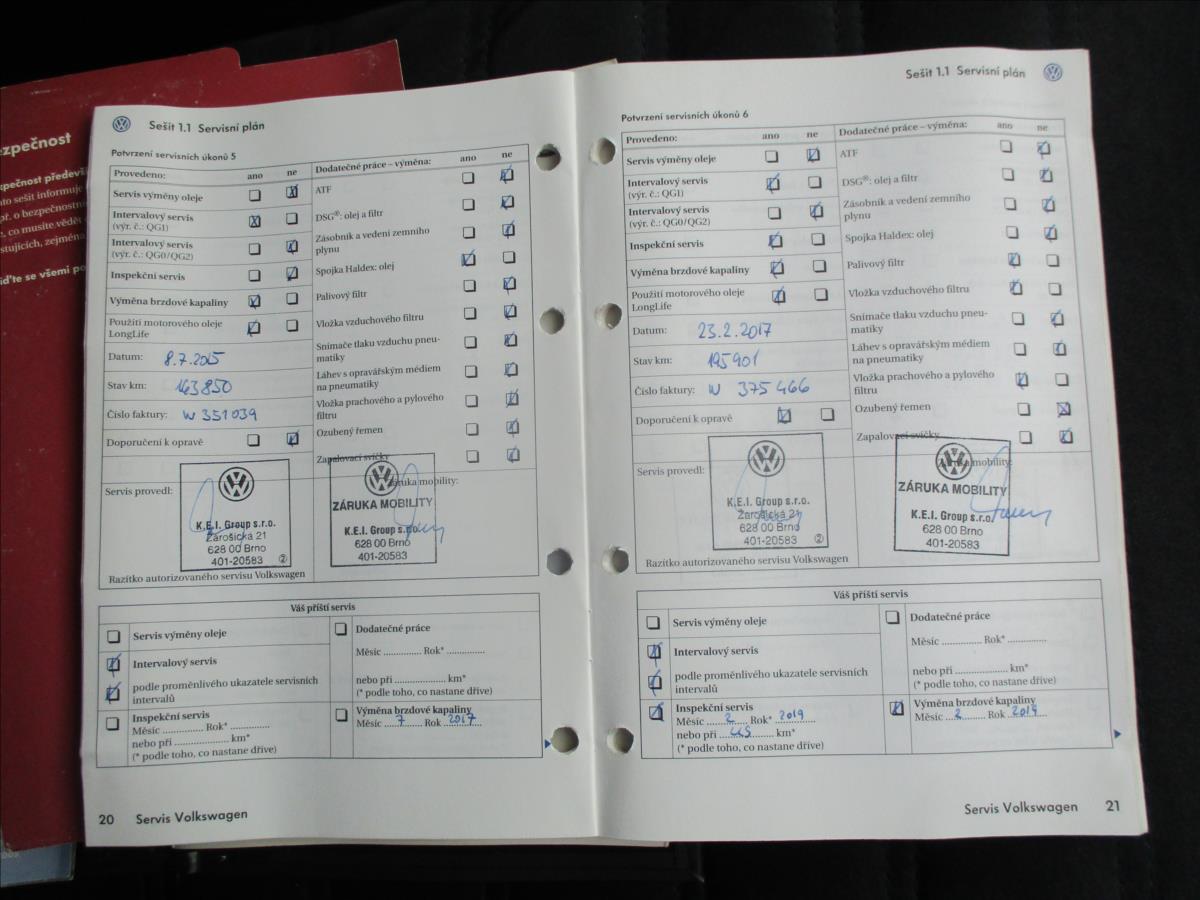 zpečnost
Sešit 1.1 Servisní plán
Potvrzení servisních úkonů 5
Provedeno: ano ne
Servis výměny oleje
Intervalový servis
(výr. č.: QG1)
Intervalový servis
(výr. č.: QG0/QG2)
Inspekční servis
Výměna brzdové kapaliny
Použití motorového oleje
LongLife
Datum: 8.7.2015
Stav km: 163850
Číslo faktury: W 351039
Doporučení k opravě
Dodatečné práce – výměna: ano ne
ATF
DSG®: olej a filtr
Zásobník a vedení zemního
plynu
Spojka Haldex: olej
Palivový filtr
Vložka vzduchového filtru
Snímače tlaku vzduchu pneu-
matiky
Láhev s opravářským médiem
na pneumatiky
Vložka prachového a pylového
filtru
Ozubený řemen
Zapalovací svíčky
Servis provedl:
K.E.I. Group s.r.o.
Zárošická 21
628 00 Brno
401-20583 2
Razítko autorizovaného servisu Volkswagen
Záruka mobility:
ZÁRUKA MOBILITY
K.E.I. Group s.r.o.
628 00 Brno
401-20583
Váš příští servis
Servis výměny oleje
Intervalový servis
podle proměnlivého ukazatele servisních
intervalů
Inspekční servis
Měsíc .............. Rok* ..............
nebo při .................... km*
(* podle toho, co nastane dříve)
Dodatečné práce
Měsíc .............. Rok* ..............
nebo při .................... km*
(* podle toho, co nastane dříve)
Výměna brzdové kapaliny
Měsíc 7 Rok 2017
20 Servis Volkswagen
Sešit 1.1 Servisní plán
Potvrzení servisních úkonů 6
Provedeno: ano ne
Servis výměny oleje
Intervalový servis
(výr. č.: QG1)
Intervalový servis
(výr. č.: QG0/QG2)
Inspekční servis
Výměna brzdové kapaliny
Použití motorového oleje
LongLife
Datum: 23.2.2017
Stav km: 195901
Číslo faktury: W 375466
Doporučení k opravě
Dodatečné práce – výměna: ano ne
ATF
DSG®: olej a filtr
Zásobník a vedení zemního
plynu
Spojka Haldex: olej
Palivový filtr
Vložka vzduchového filtru
Snímače tlaku vzduchu pneu-
matiky
Láhev s opravářským médiem
na pneumatiky
Vložka prachového a pylového
filtru
Ozubený řemen
Zapalovací svíčky
Servis provedl:
K.E.I. Group s.r.o.
Zárošická 21
628 00 Brno
401-20583 2
Razítko autorizovaného servisu Volkswagen
Záruka mobility:
ZÁRUKA MOBILITY
K.E.I. Group s.r.o.
628 00 Brno
401-20583
Váš příští servis
Servis výměny oleje
Intervalový servis
podle proměnlivého ukazatele servisních
intervalů
Inspekční servis
Měsíc 2 Rok* 2019
nebo při .................... km*
(* podle toho, co nastane dříve)
Dodatečné práce
Měsíc .............. Rok* ..............
nebo při .................... km*
(* podle toho, co nastane dříve)
Výměna brzdové kapaliny
Měsíc 2 Rok 2019
Servis Volkswagen 21